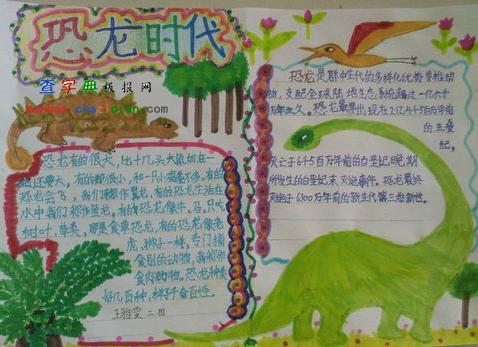 恐龙时代
查字典板报网
banbao.chazidian.com
恐龙有的很大，比十几头大象加在一
起还要大。有的却很小，和一只小鸡差不多。有的
恐龙会飞，我们称作翼龙。有的恐龙生活在
水中我们称作鱼龙。有的恐龙像牛、马，只吃
树叶、草类，那是食草恐龙。有的恐龙像老
虎、狮子一样，专门捕
食别的动物，我们称作
食肉动物。恐龙种类
好几百种，样子千奇百怪。
王雅雯 二.四
恐龙是群中生代的多样化优势脊椎动
物，支配全球陆地生态系统超过一亿六千
万年之久。恐龙最早出现在2亿4千5百万年前
的三叠
纪。
灭亡于6千5百万年前的白垩纪晚期
所发生的白垩纪末灭绝事件。恐龙最终
灭绝于6300万年前的新生代第三始新世。